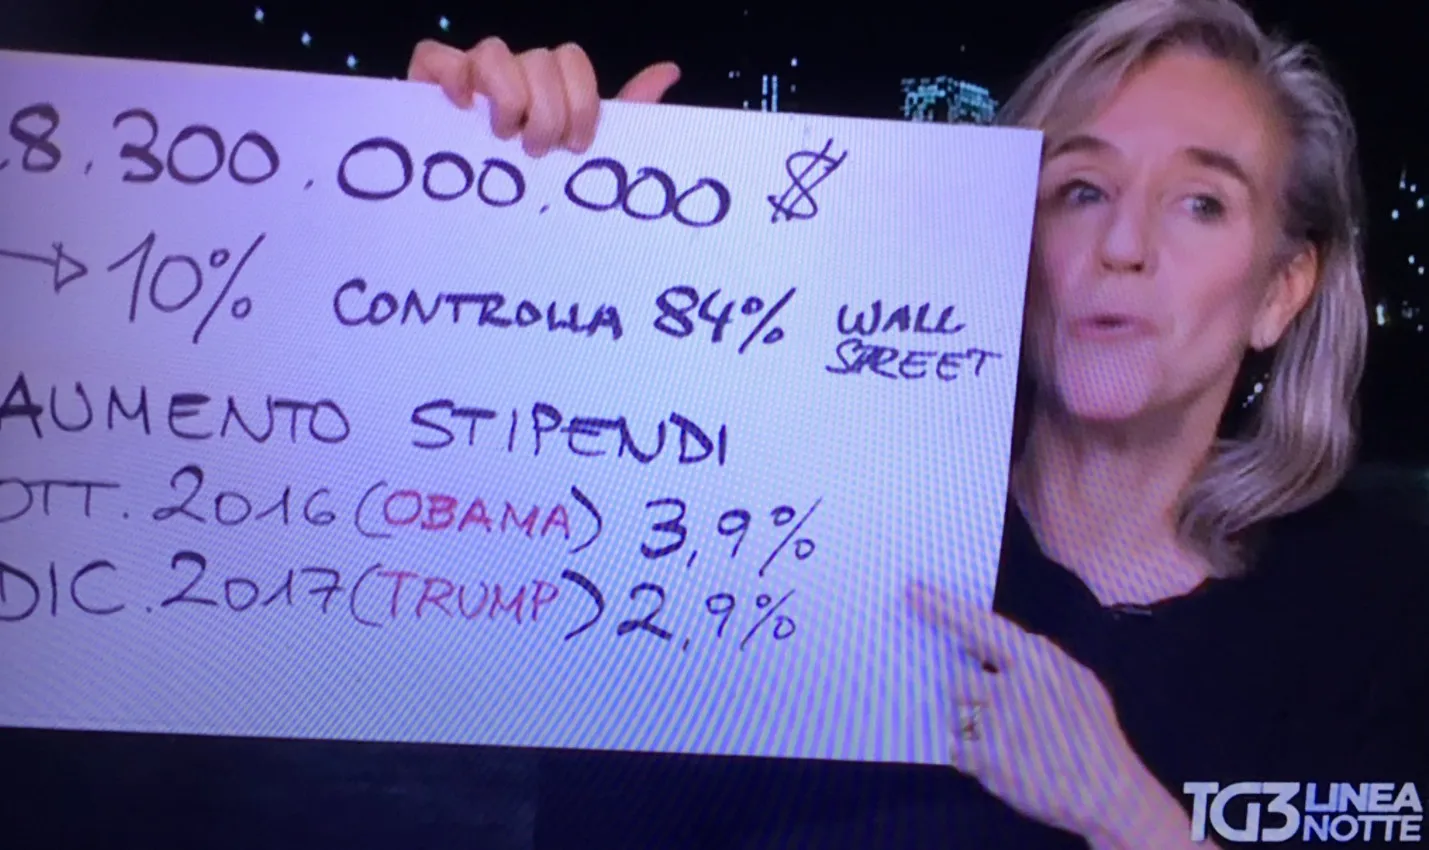 8.300.000.000 $
→ 10% CONTROLLA 84% WALL STREET
AUMENTO STIPENDI
OTT. 2016 (OBAMA) 3,9%
DIC. 2017 (TRUMP) 2,9%
TG3 LINEA
NOTTE